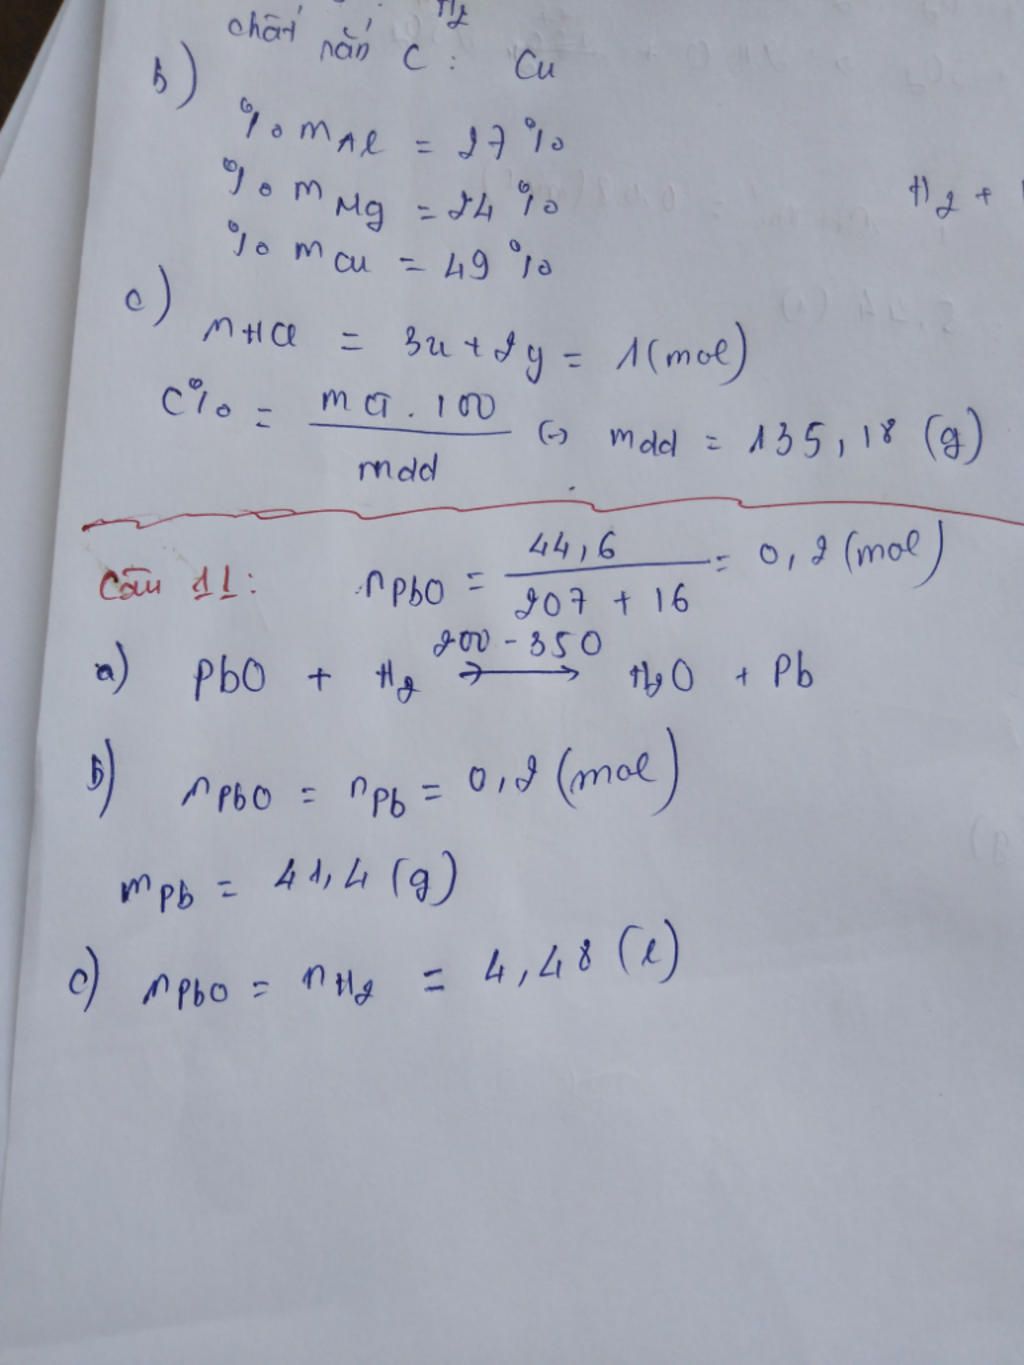 H2
chất rắn C : Cu
b)
% mAl = 27 %
% mMg = 24 %
% mCu = 49 %
H2 +
c)
nHCl = 3x + 2y = 1 (mol)
C% = mct . 100 / mdd (-) mdd = 135,18 (g)
Câu 11: nPbO = 44,6 / 207 + 16 = 0,2 (mol)
200 - 350
a) PbO + H2 → H2O + Pb
b) nPbO = nPb = 0,2 (mol)
mPb = 41,4 (g)
c) nPbO = nH2 = 4,48 (l)